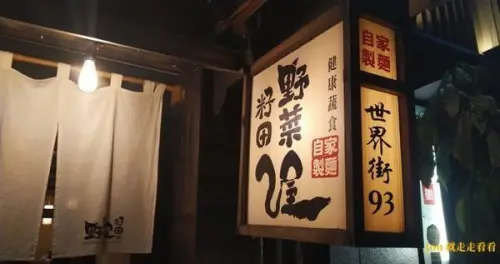 健康蔬食
野菜屋
籽田
自家
製麵
自家
製麵
世界街93
籽田
就走走看看